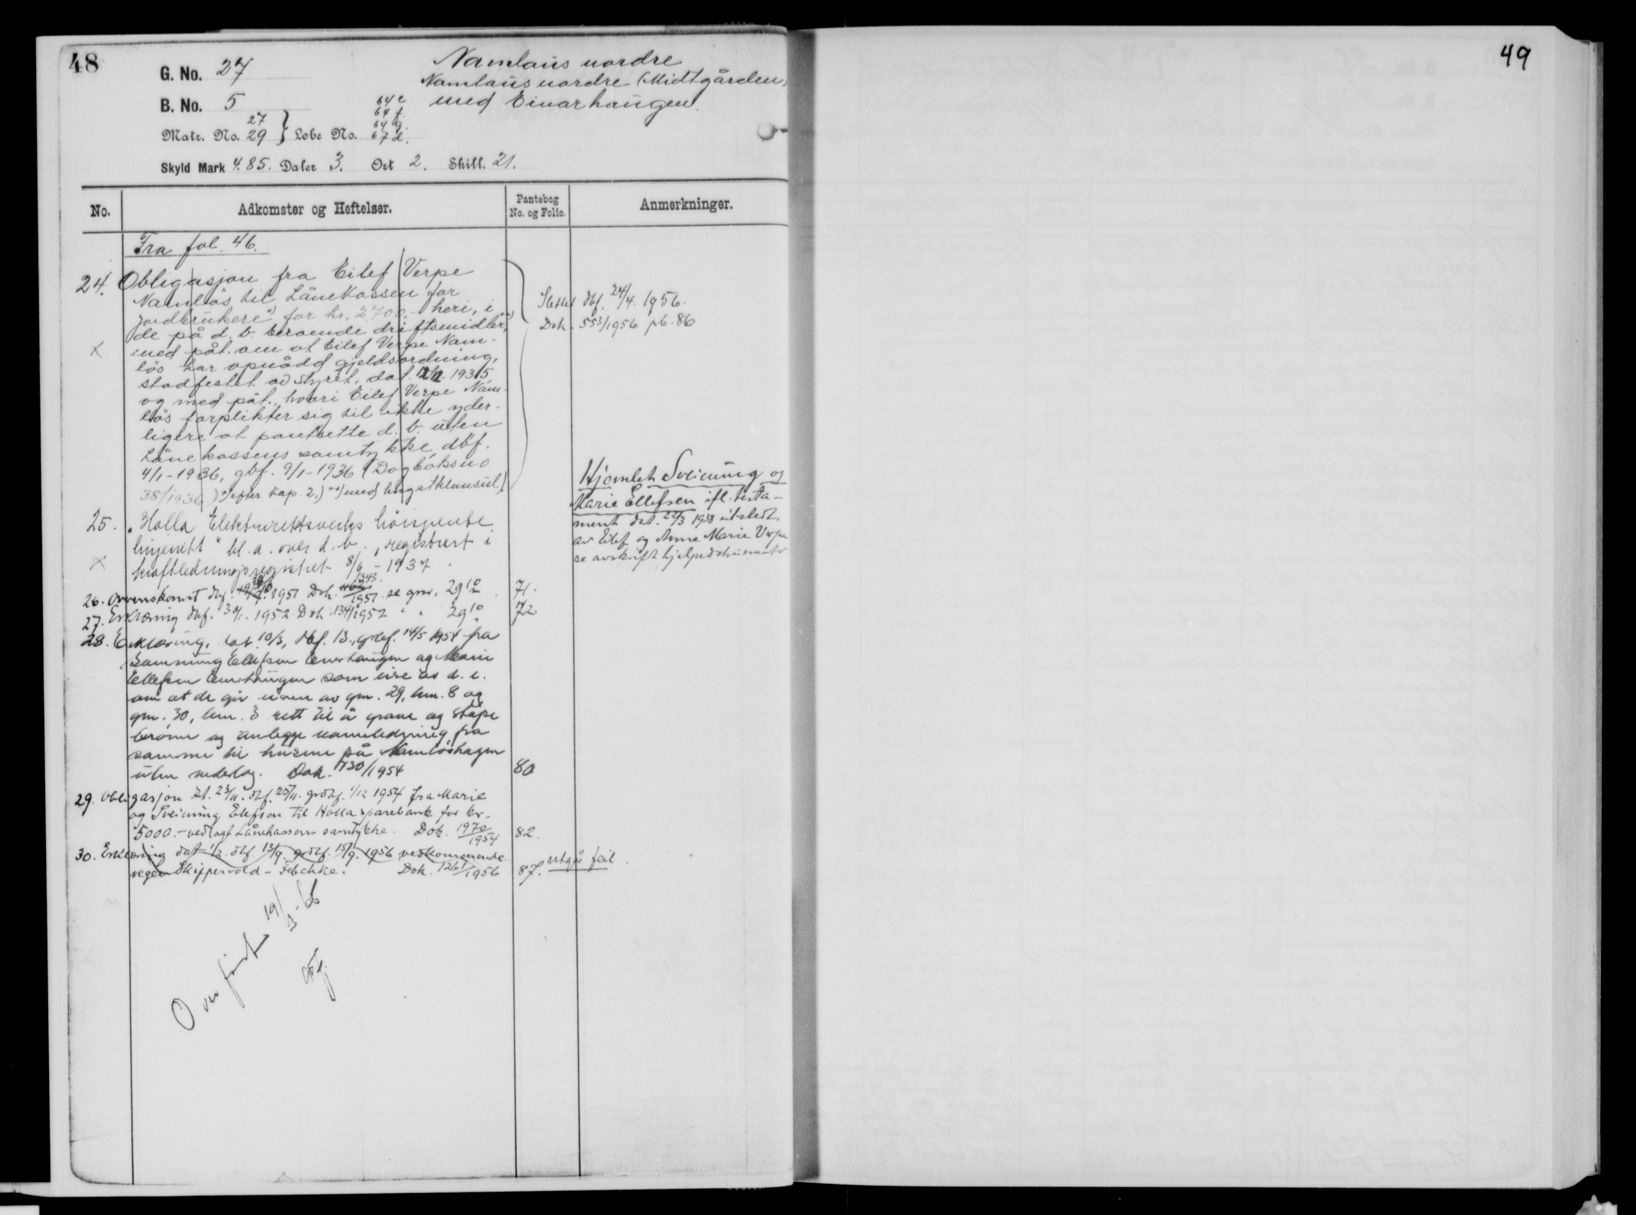 48
G. No. 27
Namlaus nordre
Namlaus nordre (Midtgården)
med Einarhaugen.
B. No. 5
Matr. No. 27 29 } Løbe No. 64e 64f 64g 67d.
Skyld Mark 4.85. Daler 3. Ort 2. Skill. 21.
No. Adkomster og Heftelser. Pantebog No. og Folio. Anmerkninger.
Fra fol. 46.
24. Obligasjon fra Eilef Verpe
Namløs til Lånekassen for
jordbrukere for kr. 2700,- heri, i
de på d. b. beroende driftsmidler,
med påt. om at Eilef Verpe Nam-
løs har opnådd gjeldsordning,
stadfestet av styret, dat. 1935
og med påt. hvori Eilef Verpe Nam-
løs forplikter sig til ikke yder-
ligere at pantsette d. b. uten
Lånekassens samtykke, dbf.
4/1-1936, gbf. 9/1-1936 (Dagboksno
38/1936) efter kap. 2.) med angstklausul)
Slettet dbf. 24/4. 1956.
Dok. 553/1956 pb. 86
25. "Holla Elektrisitetsverks høispente
linjenett" bl. a. over d. b., registrert i
kraftledningsregistret 8/6-1937.
Hjemlet: Sveinung og
Marie Ellefsen ifl. testa-
ment dat. 22/3 1938 utstedt
av Eilef og Anne Marie Verpe
se avskrift hjelpedokumenter
26. Overenskomst dbf. 1951 Dok. 1343/1951 se gnr. 29 10/2. 71.
27. Erklæring dbf. 30/1. 1952 Dok. 134/1952 " " 29 10 72
28. Erklæring, dat. 10/3, dbf. 13, grdbf. 14/5 1954 fra
Sveinung Ellefsen Einerhaugen og Marie
Ellefsen Einerhaugen som eire av d. e.
om at de gir eieren av gnr. 29, bnr. 8 og
gnr. 30, bnr. 3 rett til å grave og støpe
brønn og anlegge vannledning fra
samme til husene på Namløshagen
uten vederlag. Dok. 730/1954 80
29. Obligasjon dt. 23/11. dbf. 25/11. grdbf. 1/12 1954 fra Marie
og Sveinung Elefsen til Holla sparebank for kr.
5000.- vedlagt Lånekassens samtykke. Dok. 1972/1954 82.
30. Erklæring dat. 1/2. dbf. 13/9. grdbf. 15/9. 1956 vedkommende
vegen Skippervold - Dok. 1261/1956 87. utgår feil.
Overført 19/3-66
49